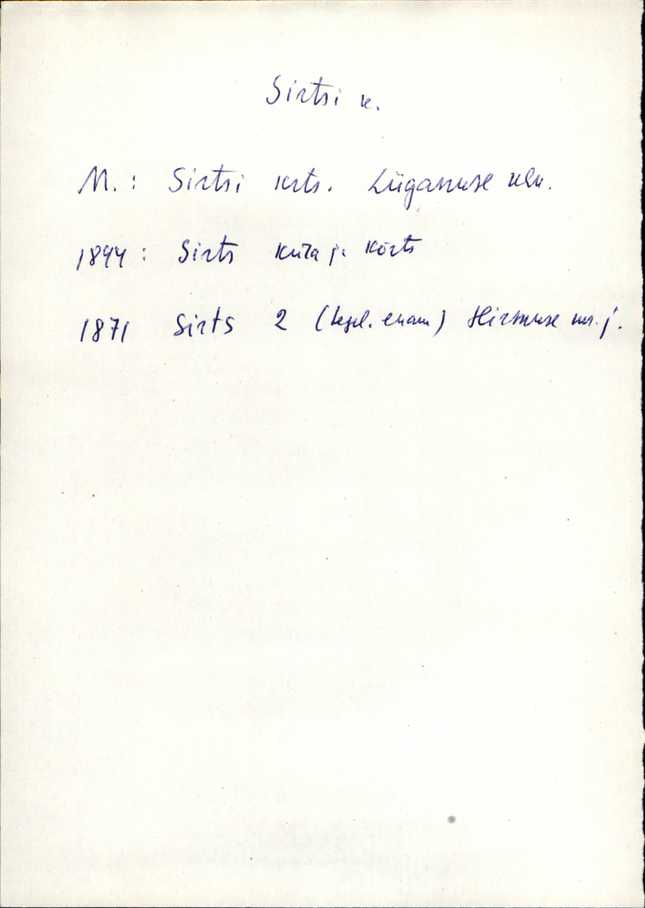 Sirtsi k.
M.: Sirtsi krts. Lüganuse khk.
1844: Sirts küla ja kõrts
1871 Sirts 2 (tegel. enam) Hirmuse ms. j.